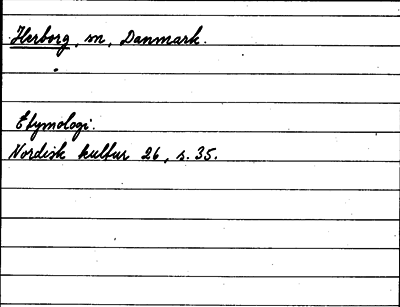 Herborg, m, Danmark.
Etymologi.
Nordisk kultur 26, s. 35.